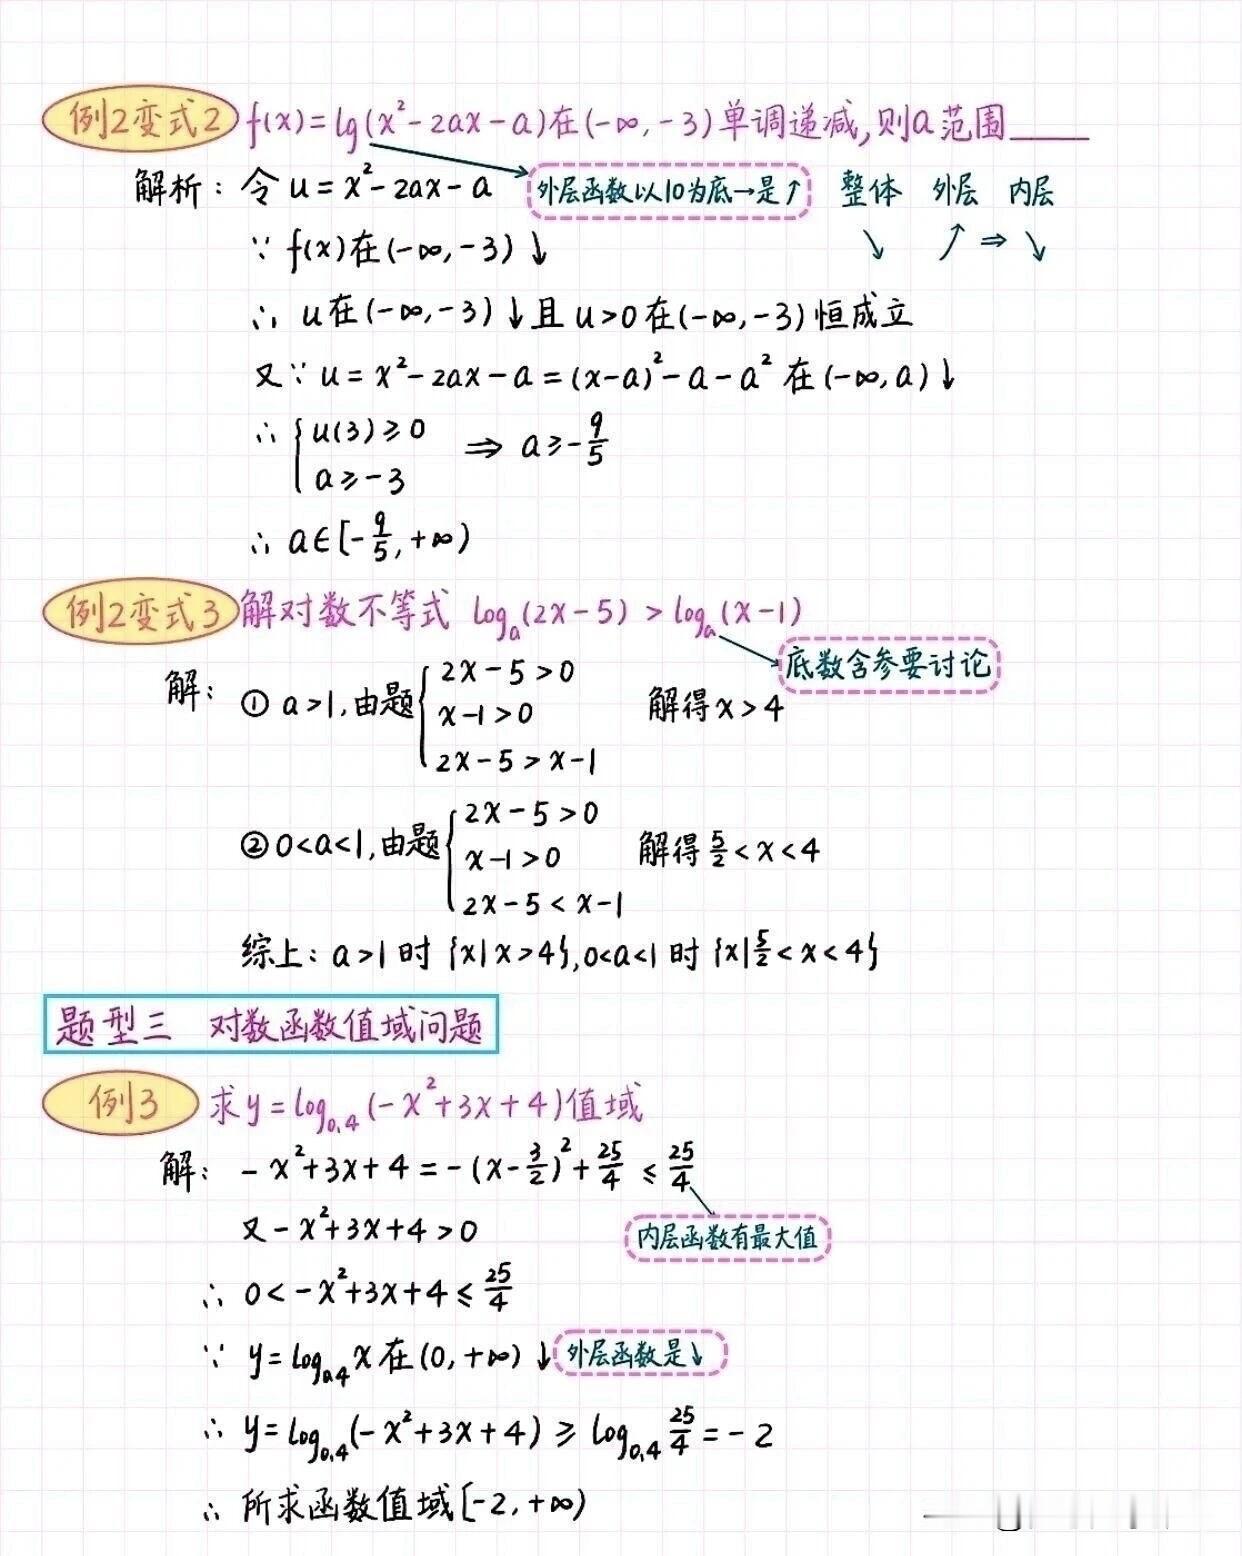 例2变式2 f(x)=lg(x²-2ax-a)在(-∞,-3)单调递减,则a范围____
解析：令u=x²-2ax-a 外层函数以10为底→是↑ 整体 外层 内层
∵ f(x)在(-∞,-3)↓ ↘ ↗⇒↘
∴ u在(-∞,-3)↓且u>0在(-∞,-3)恒成立
又∵ u=x²-2ax-a=(x-a)²-a-a² 在(-∞,a)↓
∴ { u(3)≥0
a≥-3 ⇒ a≥-9/5
∴ a∈[-9/5,+∞)
例2变式3 解对数不等式 logₐ(2x-5)>logₐ(x-1)
底数含参要讨论
解：① a>1,由题 { 2x-5>0
x-1>0 解得x>4
2x-5>x-1
② 0<a<1,由题 { 2x-5>0
x-1>0 解得5/2<x<4
2x-5<x-1
综上：a>1时{x|x>4},0<a<1时{x|5/2<x<4}
题型三 对数函数值域问题
例3 求y=log₀.₄(-x²+3x+4)值域
解：-x²+3x+4=-(x-3/2)²+25/4≤25/4
又-x²+3x+4>0 内层函数有最大值
∴ 0<-x²+3x+4≤25/4
∵ y=log₀.₄x在(0,+∞)↓ 外层函数是↓
∴ y=log₀.₄(-x²+3x+4)≥log₀.₄25/4=-2
∴ 所求函数值域[-2,+∞)